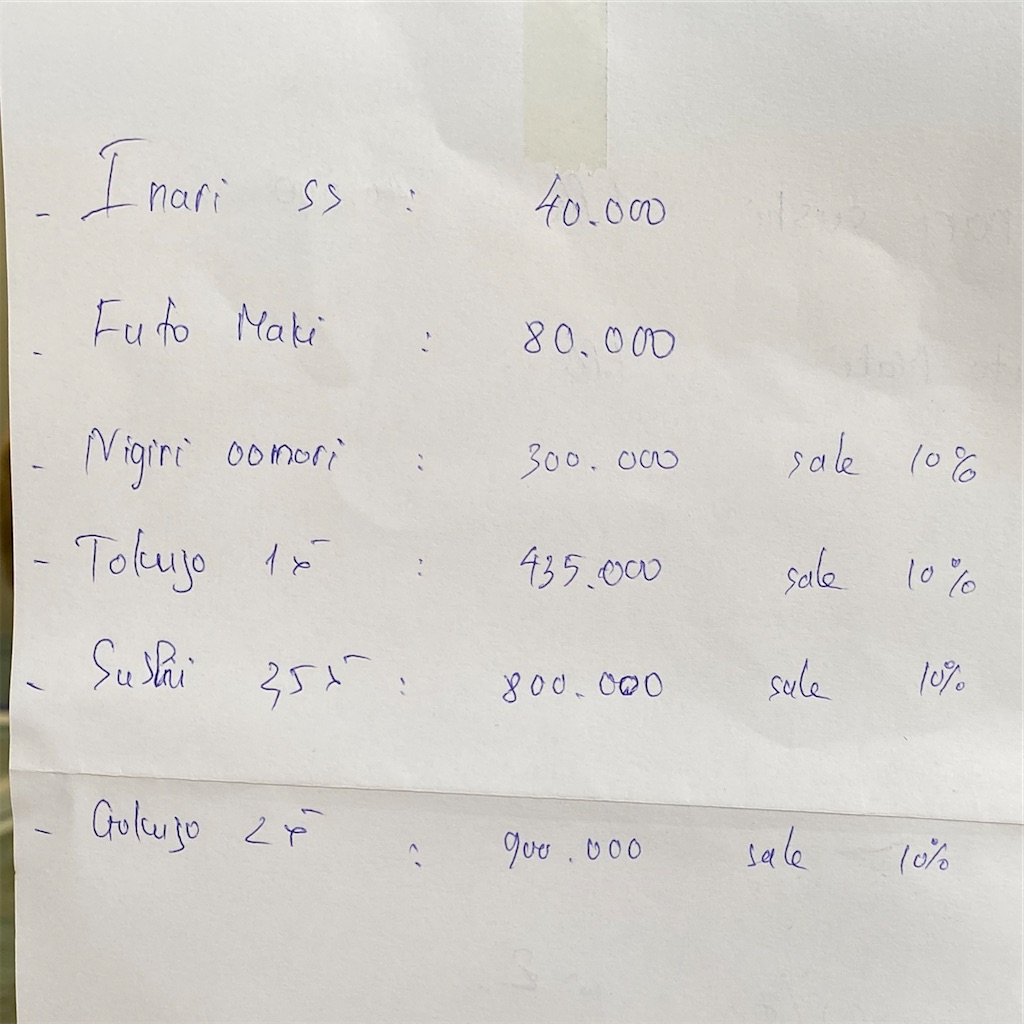 - Inari SS : 40.000
- Futo Maki : 80.000
- Nigiri oomori : 300.000 sale 10%
- Tokujo 1 : 435.000 sale 10%
- Sushi 2,5 : 800.000 sale 10%
- Gokujo 2 : 900.000 sale 10%